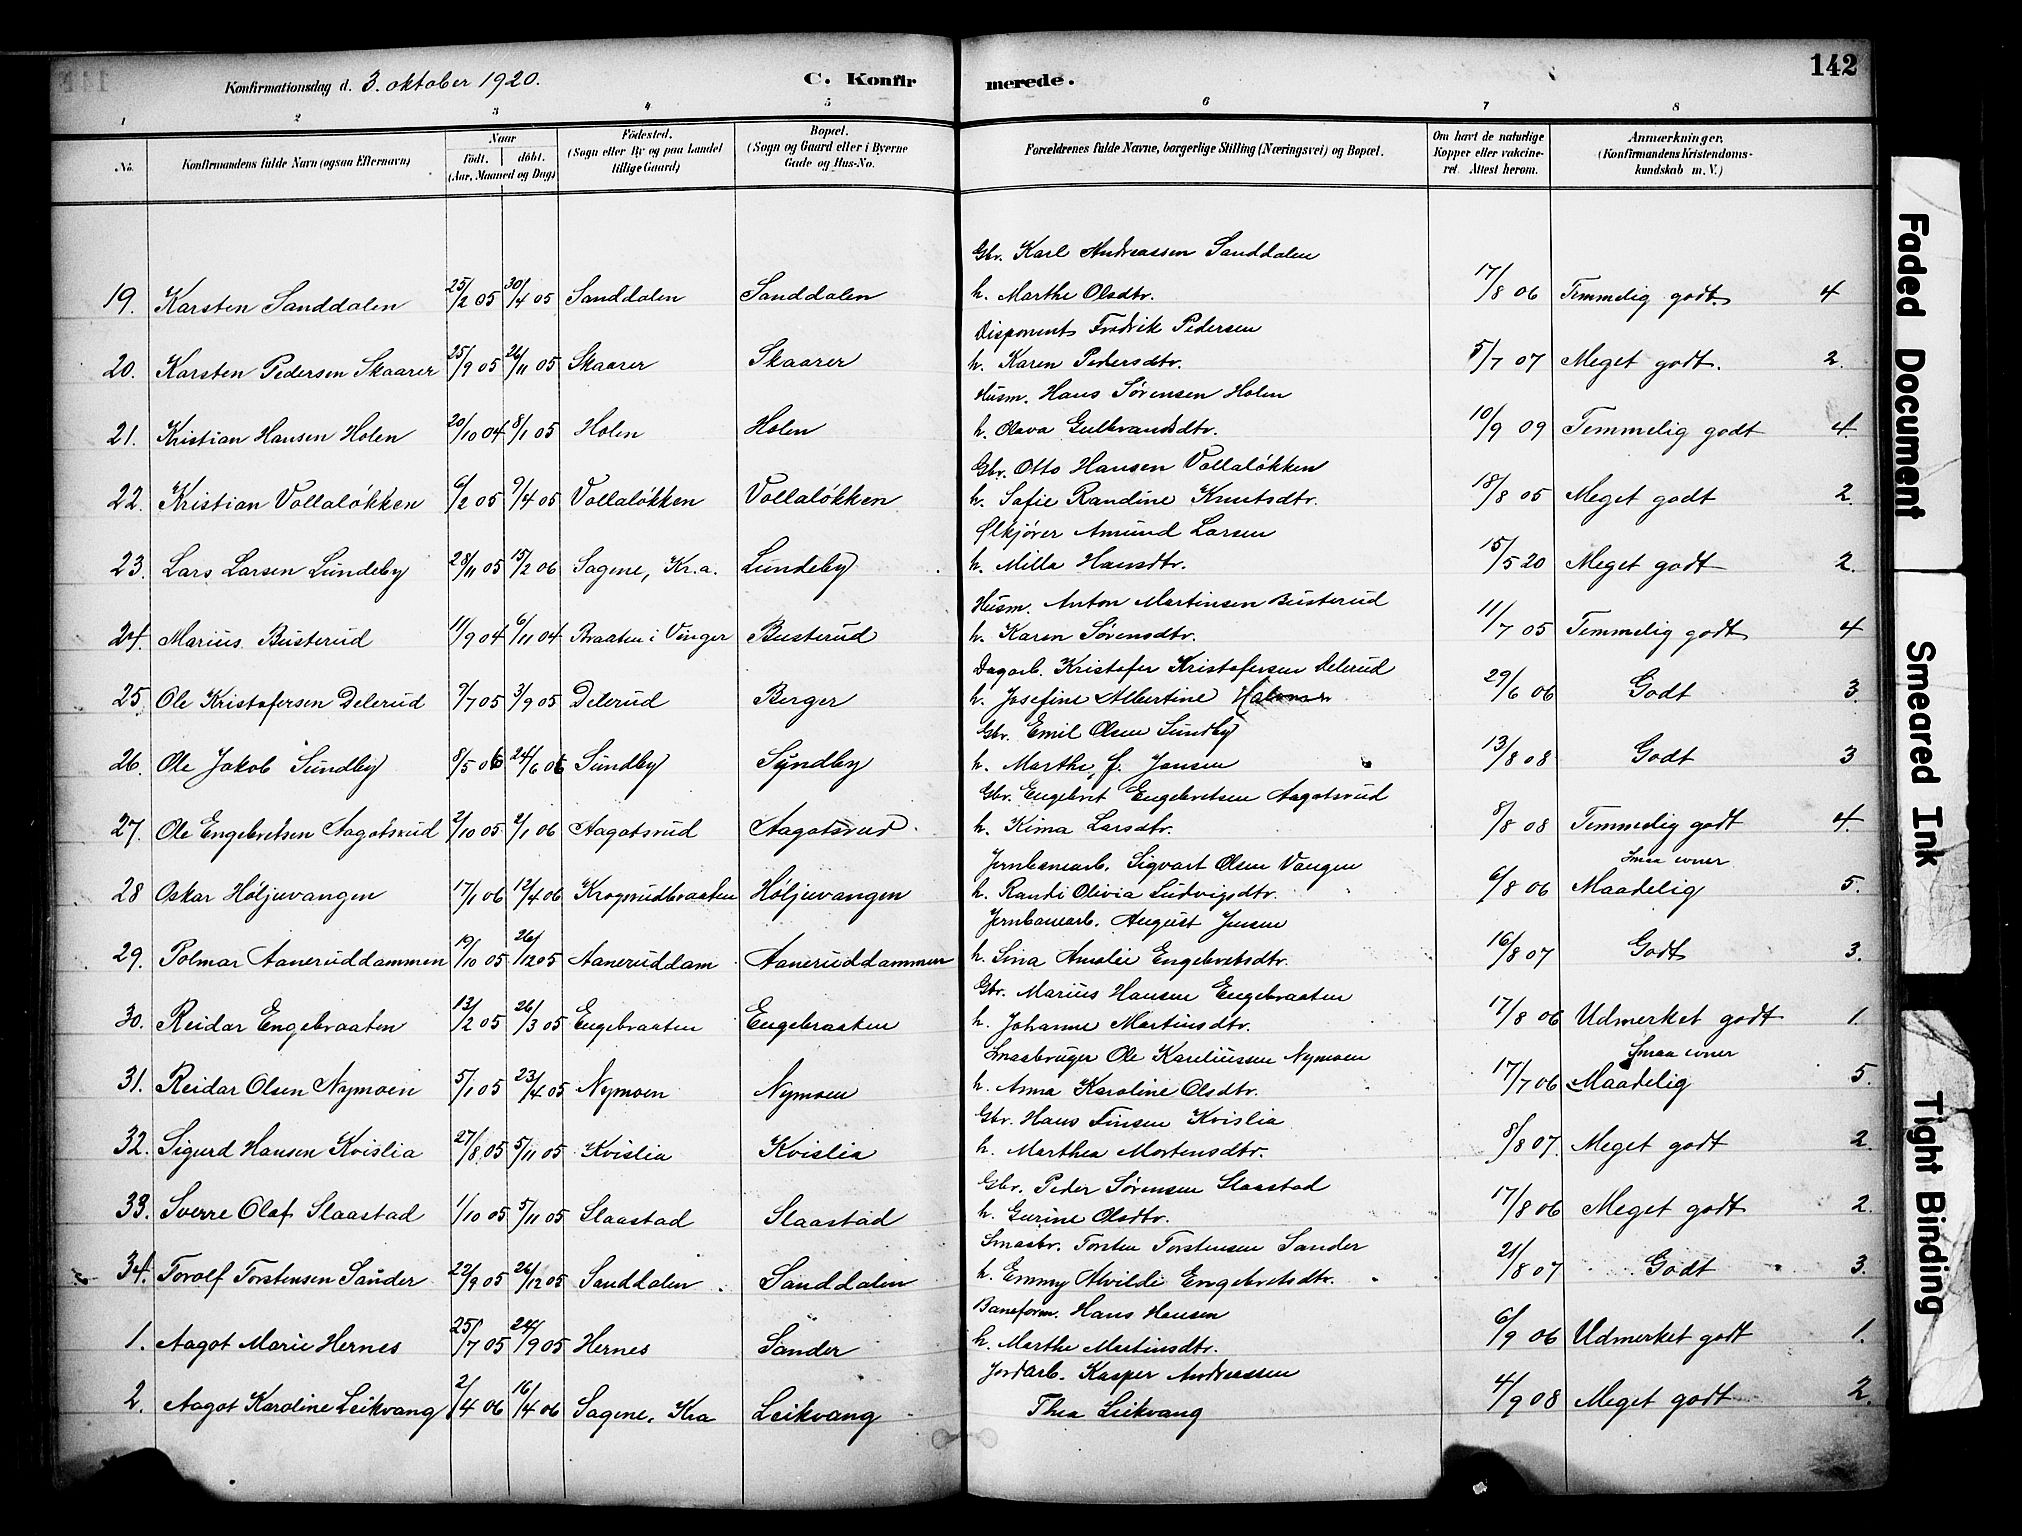 Konfirmationsdag d. 3. oktober 1920. C. Konfirmerede. 142
1 2 3 4 5 6 7 8
No. Konfirmandens fulde Navn (ogsaa Efternavn) Naar födt. döbt. (Aar, Maaned og Dag) Födested. (Sogn eller By og paa Landet tillige Gaard) Bopæl. (Sogn og Gaard eller i Byerne Gade og Hus-No. Forældrenes fulde Navne, borgerlige Stilling (Næringsvei) og Bopæl. Om havt de naturlige Kopper eller vakcineret. Attest herom. Anmærkninger. (Konfirmandens Kristendomskundskab m. V.)
Gbr. Karl Andreassen Sanddalen
19. Karsten Sanddalen 25/2 05 30/4 05 Sanddalen Sanddalen h. Marthe Olsdtr. 17/8 06 Temmelig godt. 4
Disponent Fredrik Pedersen
20. Karsten Pedersen Skaarer 25/9 05 26/11 05 Skaarer Skaarer h. Karen Pedersdtr. 5/7 07 Meget godt. 2.
Husm. Hans Sørensen Holen
21. Kristian Hansen Holen 20/10 04 8/1 05 Holen Holen h. Olava Gulbrandsdtr. 10/9 09 Temmelig godt 4.
Gbr. Otto Hansen Vollaløkken
22. Kristian Vollaløkken 6/2 05 9/4 05 Vollaløkken Vollaløkken h. Safie Randine Knutsdtr. 18/8 05 Meget godt 2
Ølkjører Amund Larsen
23. Lars Larsen Lundeby 28/11 05 15/2 06 Sagene, Kr.a. Lundeby h. Milla Hansdtr. 15/5 20 Meget godt 2.
Husm. Anton Martinsen Busterud
24. Marius Busterud 11/9 04 6/11 04 Braaten i Vinger Busterud h. Karen Sørensdtr. 11/7 05 Temmelig godt 4
Dagarb. Kristofer Kristofersen Delerud
25. Ole Kristofersen Delerud 9/7 05 3/9 05 Delerud Berger h. Josefine Albertine 29/6 06 Godt 3.
Gbr. Emil Olsen Sundby
26. Ole Jakob Sundby 8/5 06 24/6 06 Sundby Syndby h. Marthe, f. Jansen 13/8 08 Godt 3
Gbr. Engebret Engebretsen Aagotsrud
27. Ole Engebretsen Aagotsrud 2/10 05 2/1 06 Aagotsrud Aagotsrud. h. Kima Larsdtr. 8/8 08 Temmelig godt 4.
Jernbanearb. Sigvart Olsen Vangen Smaa evner
28 Oskar Høljuvangen 17/1 06 12/4 06 Krogsrudbraaten Høljuvangen h. Randi Olivia Ludvigsdtr. 6/8 06 Maadelig 5.
Jernbanearb. August Jensen
29. Polmar Aaneruddammen 19/10 05 26/12 05 Aaneruddam Aaneruddammen h. Lina Amalie Engebretsdtr. 16/8 07 Godt 3.
Gbr. Marius Hansen Engebraaten
30. Reidar Engebraaten 13/2 05 26/3 05 Engebraaten Engebraaten h. Johanne Martinsdtr. 17/8 06 Udmerket godt 1.
Smaabruger Ole Kareliussen Nymoen Smaa evner
31. Reidar Olsen Nymoen 5/1 05 23/4 05 Nymoen Nymoen h. Anna Karoline Olsdtr. 17/7 06 Maadelig 5.
Gbr. Hans Finsen Kvislia
32. Sigurd Hansen Kvislia 27/8 05 5/11 05 Kvislia Kvislia h. Marthea Mortensdtr. 8/8 07. Meget godt 2
Gbr. Peder Sørensen Slaastad
33. Sverre Olaf Slaastad 1/10 05 5/11 05 Slaastad Slaastad h. Gurine Olsdtr. 17/8 06 Meget godt 2.
Smaabr. Torsten Torstensen Sander
34. Torolf Torstensen Sander 22/9 05 26/12 05 Sanddalen Sanddalen h. Emmy Alvilde Engebretsdtr. 21/8 07 Godt 3.
Baneform. Hans Hansen
1. Aagot Marie Hernes 25/7 05 24/9 05 Hernes Sander h. Marthe Martinsdtr. 6/9 06 Udmerket godt 1.
Jordarb. Kasper Andreassen
2. Aagot Karoline Leikvang 2/4 06 16/4 06 Sagene, Kra Leikvang Thea Leikvang 4/9 08 Meget godt 2.
Faded Document
Smeared Ink
Tight Binding